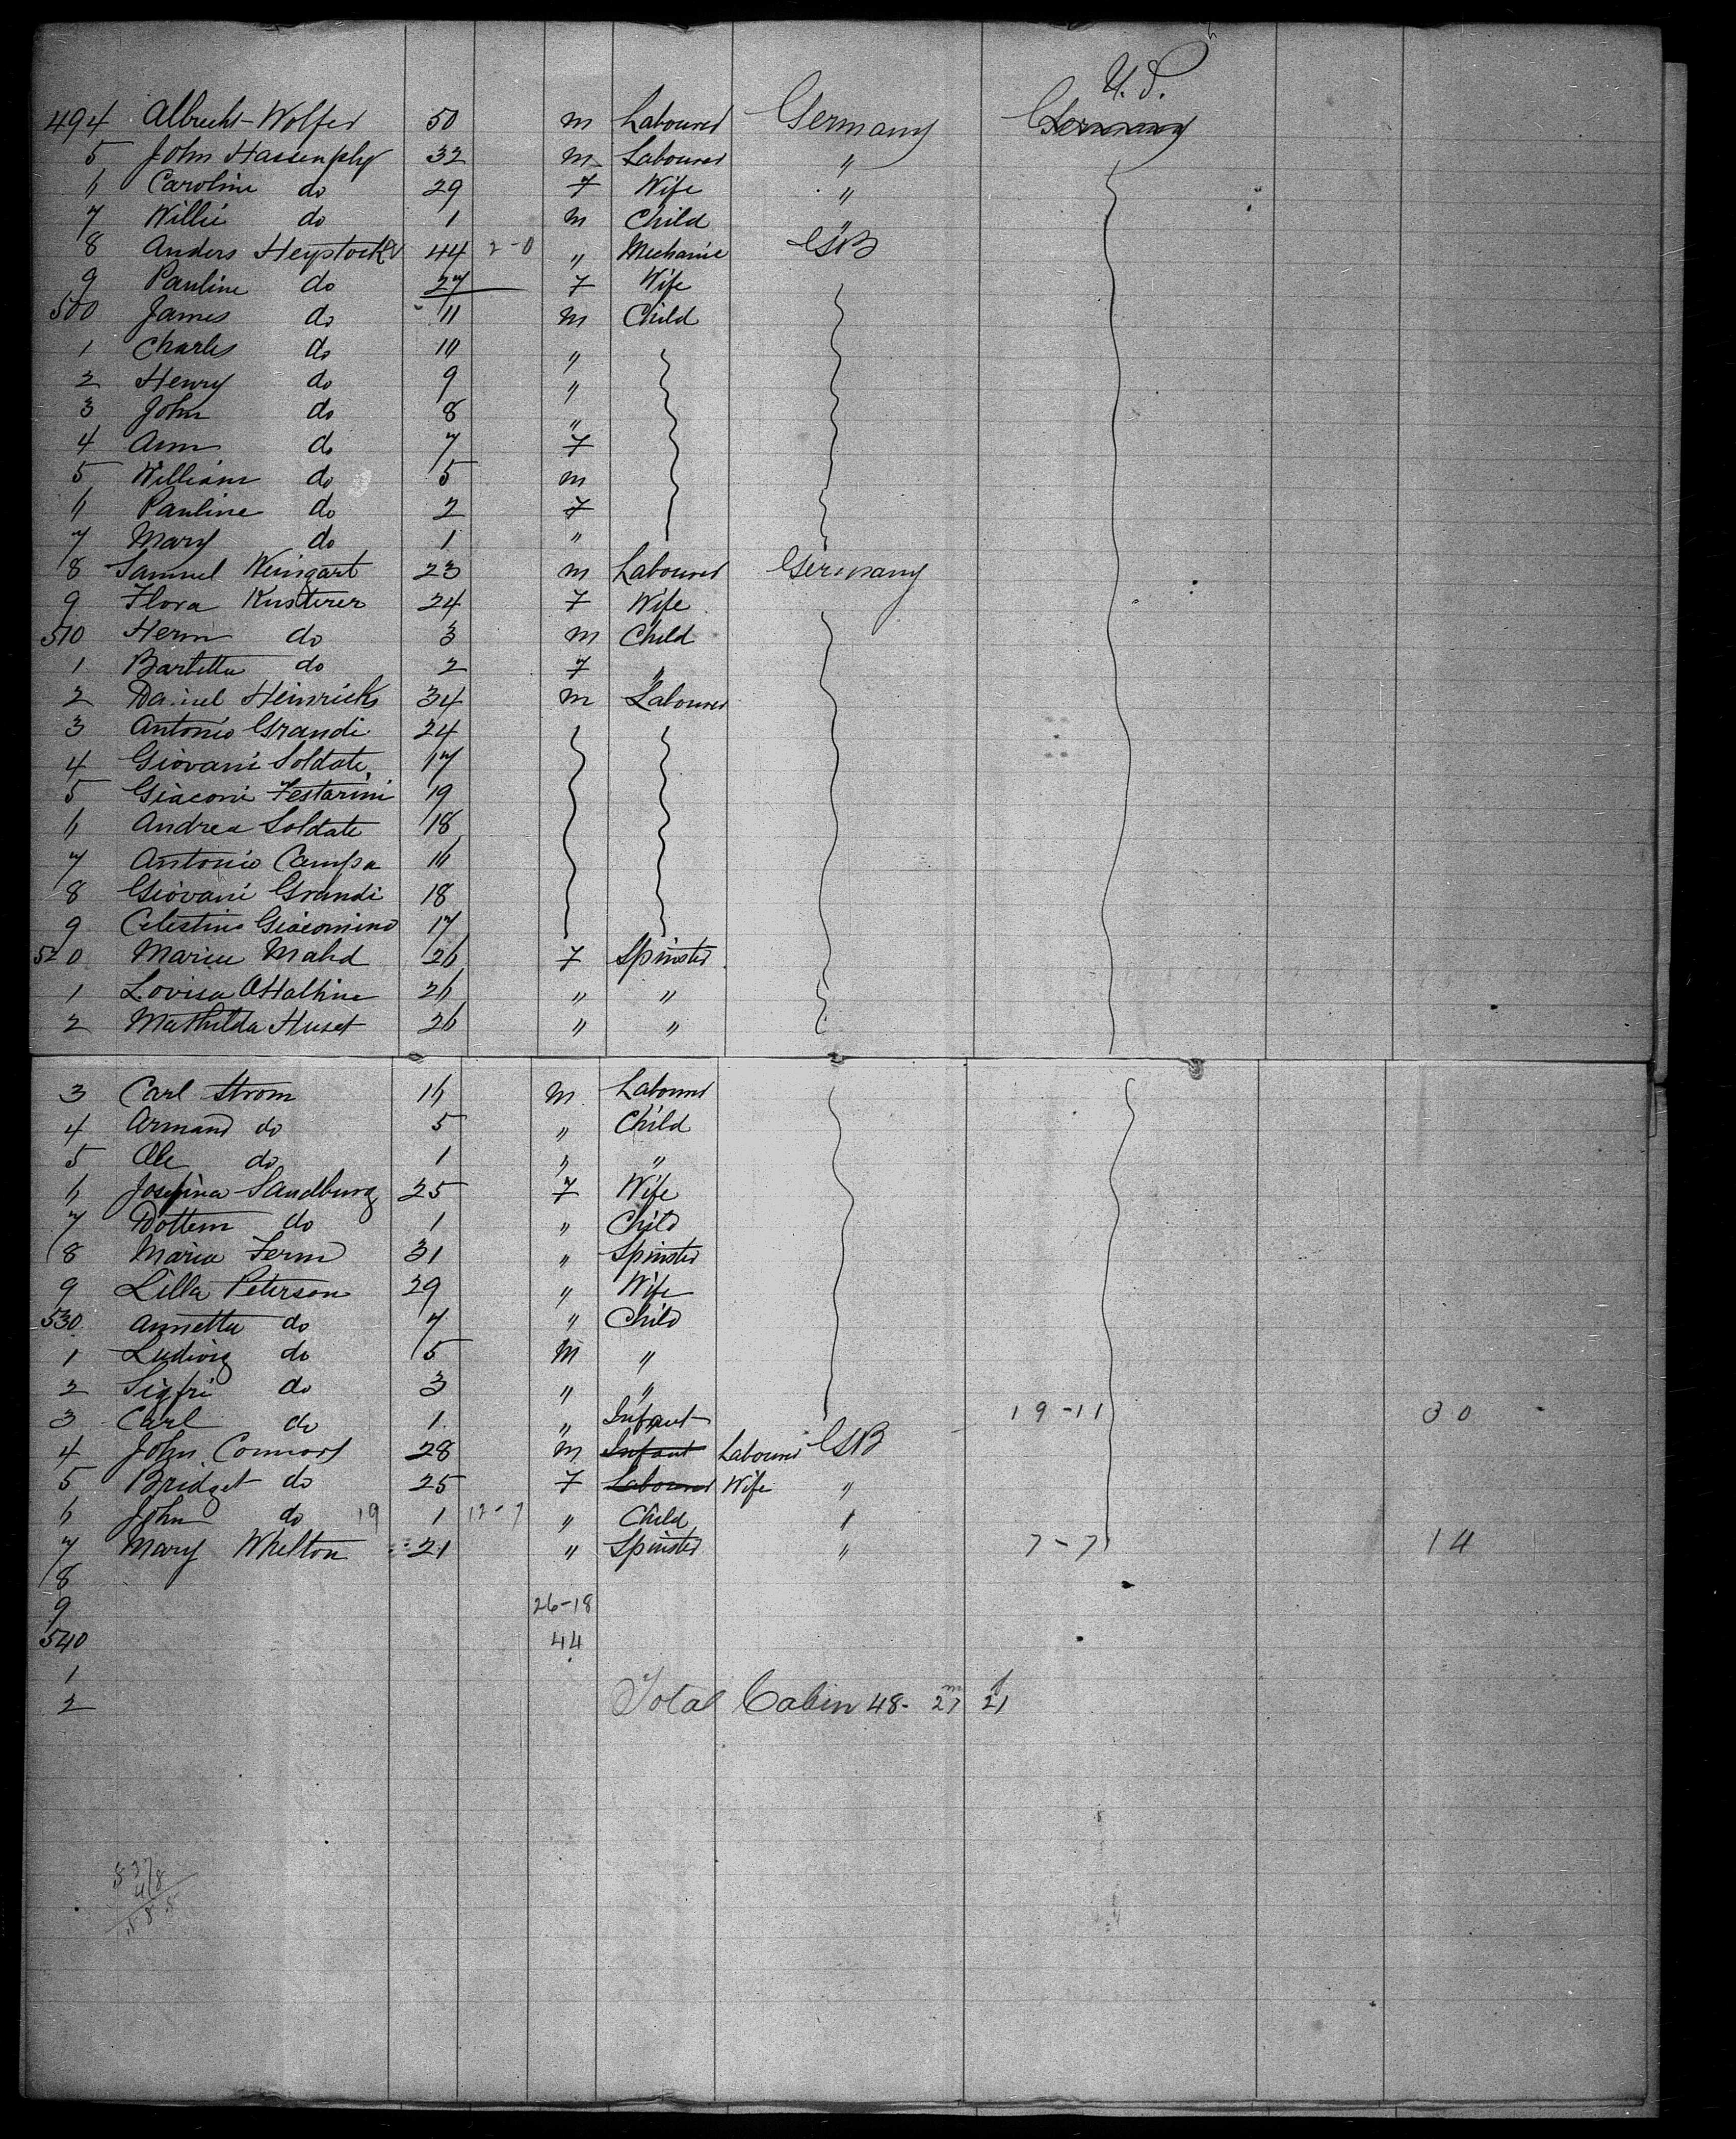 U.S.
494 Albrecht Wolfer 50 m Labourer Germany Germany
5 John Hassenphy 32 m Labourer "
6 Caroline do 29 F Wife "
7 Willie do 1 m Child "
8 Anders Heystock 44 2-0 " Mechanic GB
9 Pauline do 27 F Wife
500 James do 11 m Child
1 Charles do 10 "
2 Henry do 9 "
3 John do 8 "
4 Ann do 7 F
5 William do 5 m
6 Pauline do 2 F
7 Mary do 1 "
8 Samuel Weingart 23 m Labourer Germany
9 Flora Kusterer 24 F Wife
510 Herm do 3 m Child
1 Barbetta do 2 F "
2 Daniel Heinricks 34 m Labourer
3 Antonio Grandi 24
4 Giovani Soldate 17
5 Giaconi Festarini 19
6 Andrea Soldate 18
7 Antonio Campa 16
8 Giovani Grandi 18
9 Celestino Giacomino 17
520 Mariee 26 F Spinster
1 Lovisa 26 " "
2 Mathilda Huset 26 " "
3 Carl Strom 16 m Labourer
4 Armand do 5 " Child
5 Ole do 1 " "
6 Josefina Sandburg 25 F Wife
7 Dottem do 1 " Child
8 Maria Ferm 31 " Spinster
9 Lilla Peterson 29 " Wife
530 Annetta do 7 " Child
1 Ludvig do 5 m "
2 Sigfri do 3 " "
3 Carl do 1 " Infant 19-11 30
4 John Connors 28 m Infant Labourer GB
5 Bridget do 25 F Labourer Wife "
6 John do 19 1 12-7 " Child "
7 Mary Whelton 21 " Spinster " 7-7 14
8
9 26-18
540 44
1
2 Total Cabin 48- m 27 f 21
537
48
585